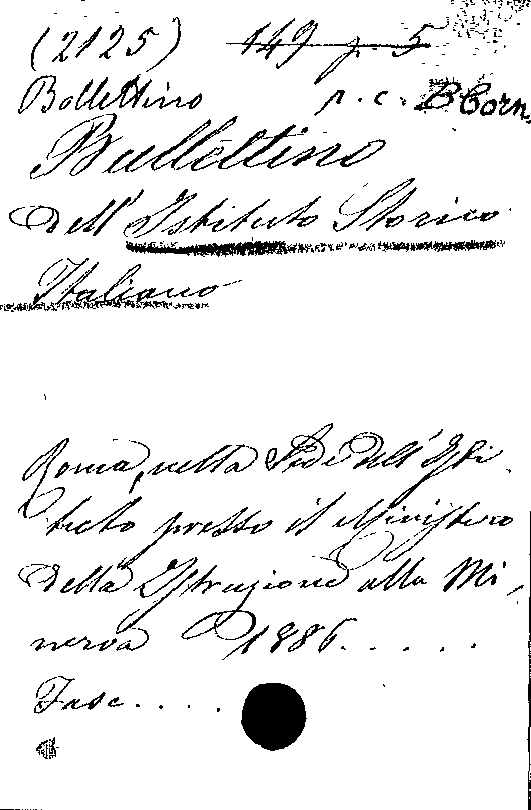 (2125) 149 p. 5
Bollettino r. c. B Corn.
Bullettino
dell' Istituto Storico
Italiano
Roma, nella Sede dell' Isti
tuto presso il Ministero
della Istruzione alla Mi,
nerva 1886. . . . . .
Fasc. . . . .